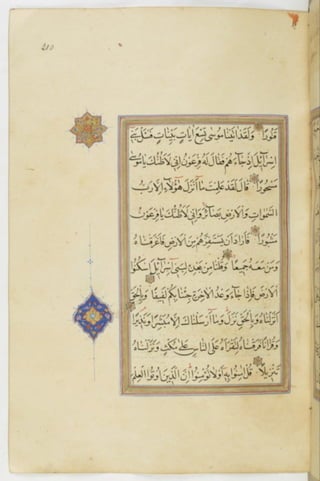 قَتُورًا وَلَقَدْ آتَيْنَا مُوسَى تِسْعَ آيَاتٍ بَيِّنَاتٍ فَسْئَلْ بَنِي
إِسْرَائِيلَ إِذْ جَاءَهُمْ فَقَالَ لَهُ فِرْعَوْنُ إِنِّي لَأَظُنُّكَ يَا مُوسَى
مَسْحُورًا قَالَ لَقَدْ عَلِمْتَ مَا أَنْزَلَ هَؤُلَاءِ إِلَّا رَبُّ
السَّمَوَاتِ وَالْأَرْضِ بَصَائِرَ وَإِنِّي لَأَظُنُّكَ يَا فِرْعَوْنُ
مَثْبُورًا فَأَرَادَ أَنْ يَسْتَفِزَّهُمْ مِنَ الْأَرْضِ فَأَغْرَقْنَاهُ
وَمَنْ مَعَهُ جَمِيعًا وَقُلْنَا مِنْ بَعْدِهِ لِبَنِي إِسْرَائِيلَ اسْكُنُوا
الْأَرْضَ فَإِذَا جَاءَ وَعْدُ الْآخِرَةِ جِئْنَا بِكُمْ لَفِيفًا وَبِالْحَقِّ
أَنْزَلْنَاهُ وَبِالْحَقِّ نَزَلَ وَمَا أَرْسَلْنَاكَ إِلَّا مُبَشِّرًا وَنَذِيرًا
وَقُرْآنًا فَرَقْنَاهُ لِتَقْرَأَهُ عَلَى النَّاسِ عَلَى مُكْثٍ وَنَزَّلْنَاهُ
تَنْزِيلًا قُلْ آمِنُوا بِهِ أَوْ لَا تُؤْمِنُوا إِنَّ الَّذِينَ أُوتُوا الْعِلْمَ